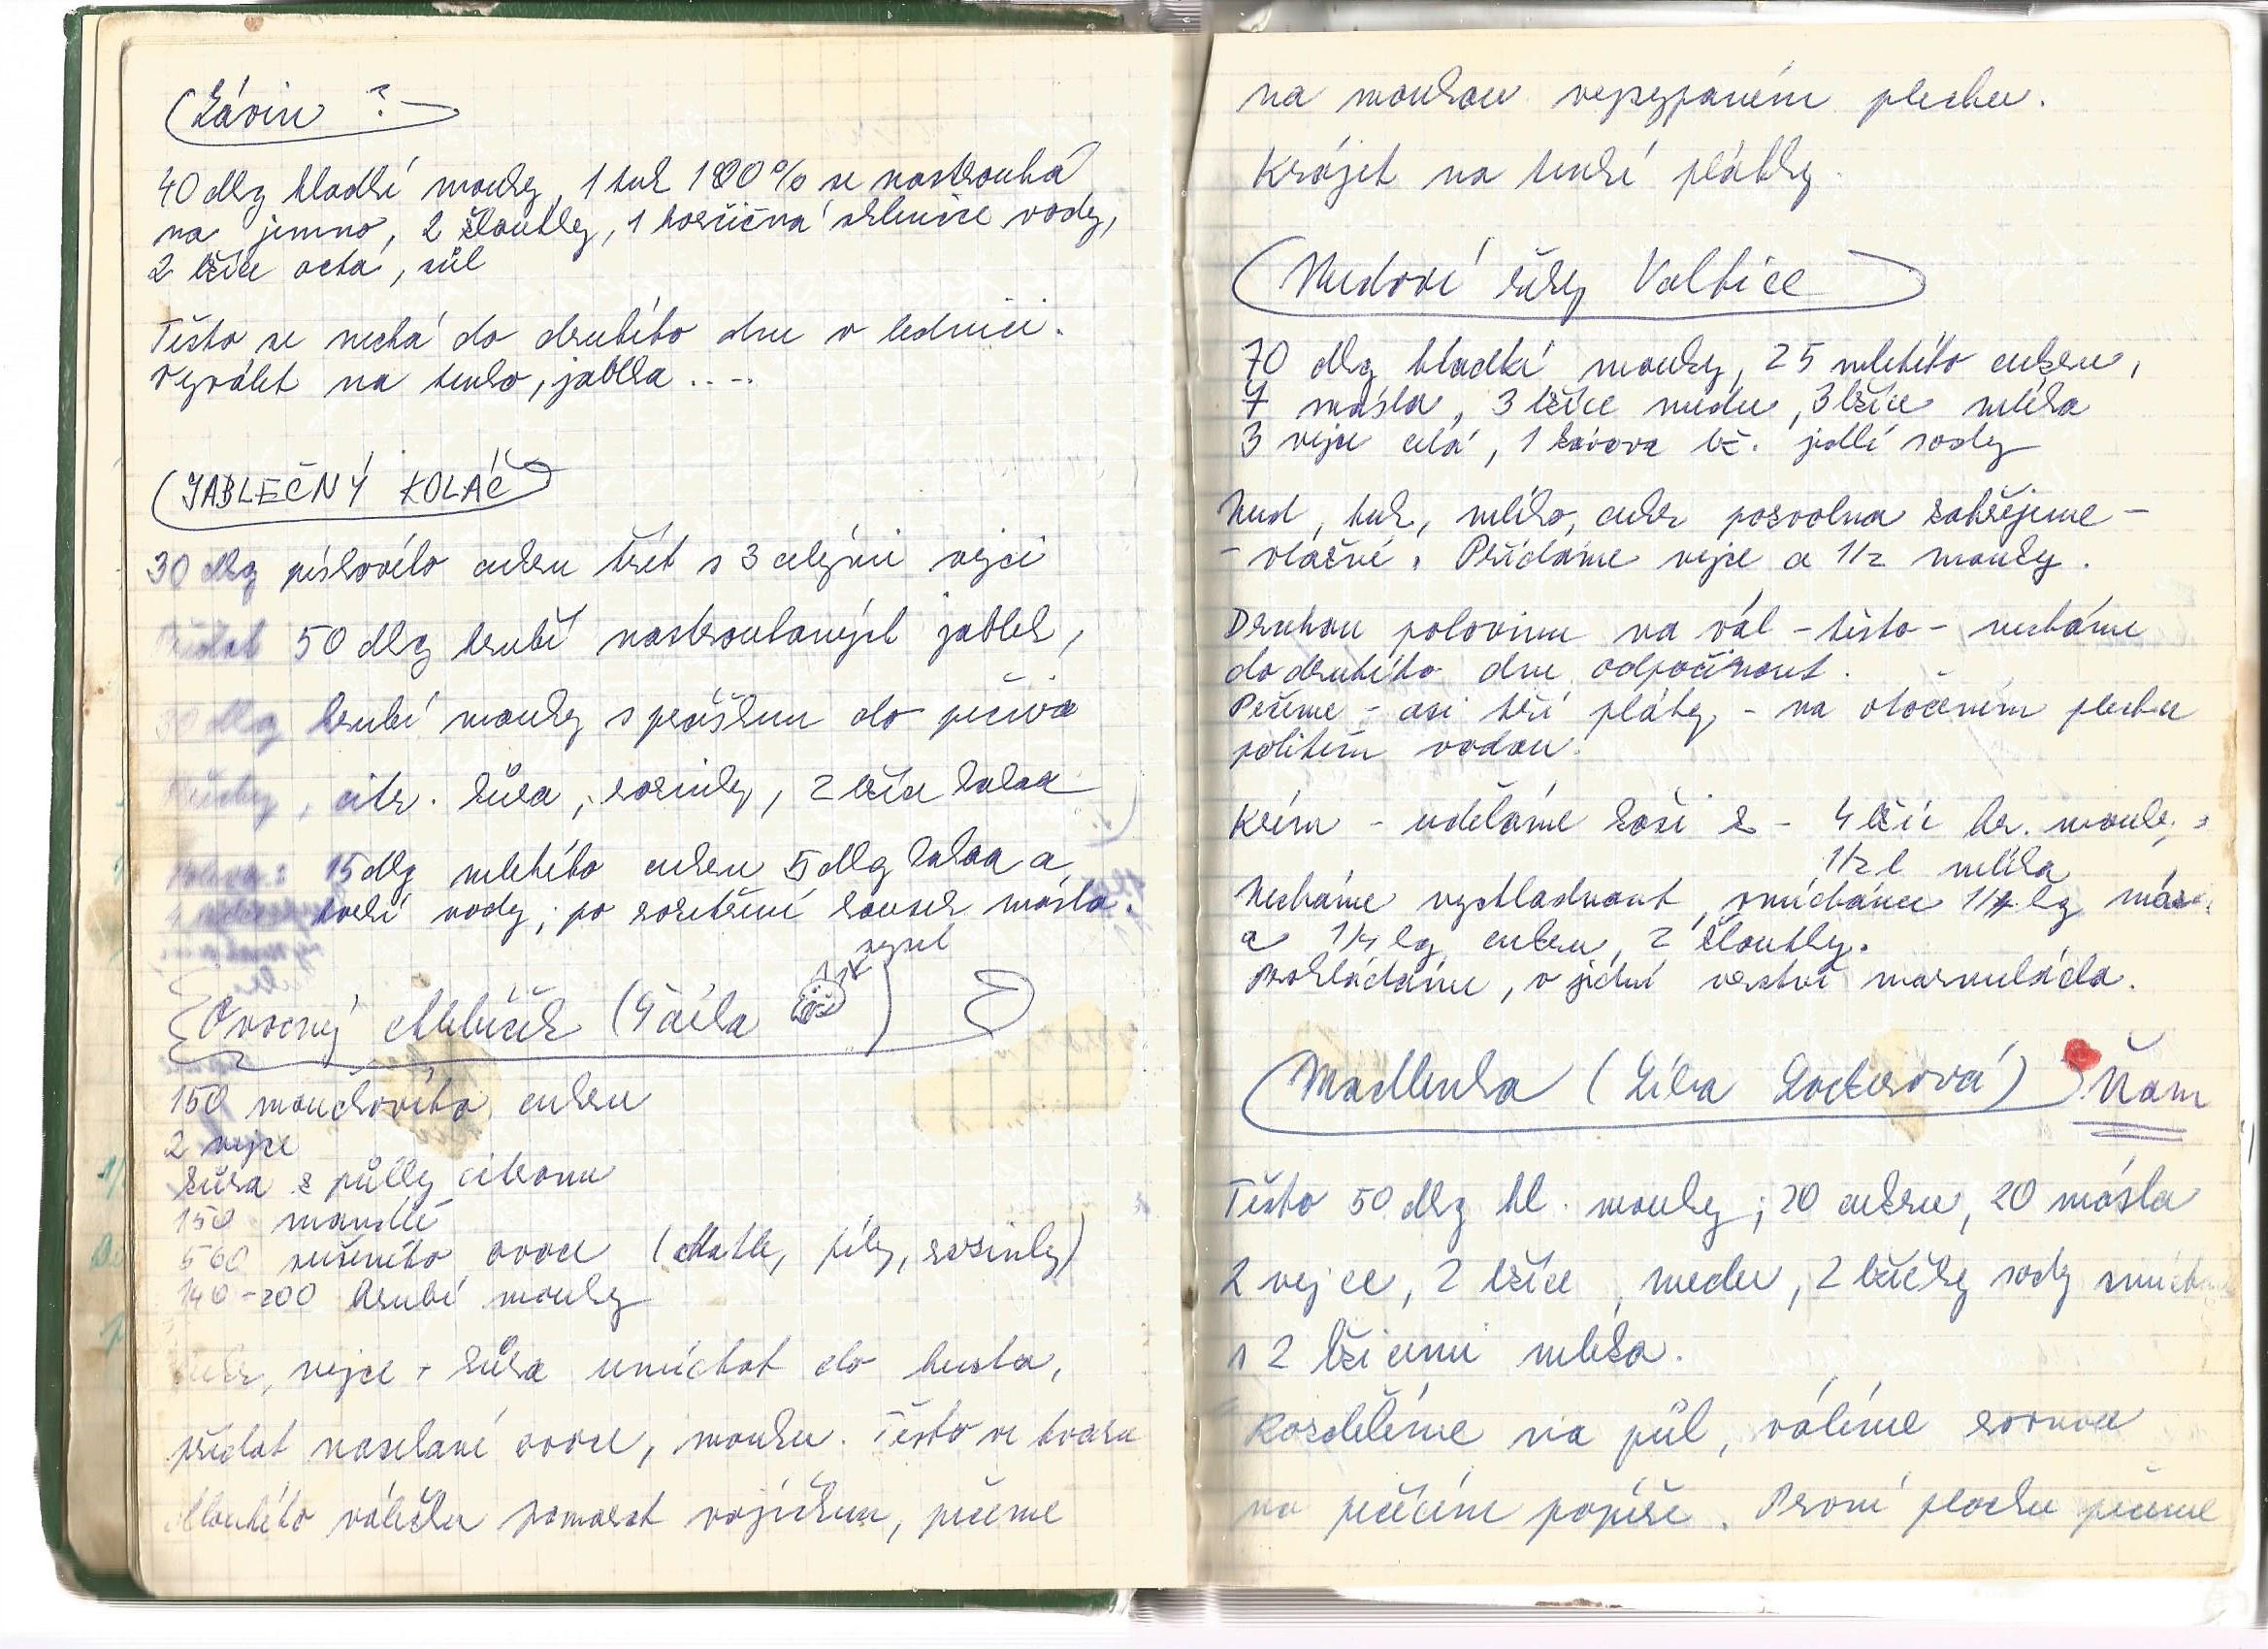 Závin ?
40 dkg hladké mouky, 1 tuk 100% se nastrouhá
na jemno, 2 žloutky, 1 hořčičná sklenice vody,
2 lžíce octa, sůl
Těsto se nechá do druhého dne v lednici.
Vyválet na tenko, jablka ....
JABLEČNÝ KOLÁČ
30 dkg pískového cukru třít s 3 celými vejci
Přidat 50 dkg hrubě nastrouhaných jablek,
30 dkg hrubé mouky s práškem do pečiva
Ořechy, citr. kůra, rozinky, 2 lžíce kakaa
Poleva: 15 dkg mletého cukru 5 dkg kakaa a
horké vody, po rozetření kousek másla.
nejsem
Ovocný chlebíček (Gáila
150 moučkového cukru
2 vejce
kůra z půlky citronu
150 mandlí
560 sušeného ovoce (datle, fíky, rozinky)
140-200 hrubé mouky
Cukr, vejce + kůra umíchat do husta,
přidat nasekané ovoce, mouku. Těsto ve tvaru
dlouhého válečku pomazat vajíčkem, pečeme
na moukou vysypaném plechu.
Krájet na tenké plátky.
Medové řezy Valtice
70 dkg hladké mouky, 25 mletého cukru,
7 másla, 3 lžíce medu, 3 lžíce mléka
3 vejce celá, 1 kávová lž. jedlé sody
Med, tuk, mléko, cukr pozvolna zahřejeme -
- vlažné. Přidáme vejce a 1/2 mouky.
Druhou polovinu na vál - těsto - necháme
do druhého dne odpočinout.
Pečeme - asi tři pláty - na otočeném plechu
politém vodou.
Krém - uděláme kaši z - 4 lžíc hr. mouky,
1/2 l mléka
Necháme vychladnout, smícháme 1/4 kg másla
a 1/4 kg cukru, 2 žloutky.
Prokládáme, v jedné vrstvě marmeláda.
Madlenka (Líba Lockerová) Ňam
Těsto 50 dkg hl. mouky; 20 cukru, 20 másla
2 vejce, 2 lžíce, medu, 2 lžičky sody smíchané
s 2 lžícemi mléka.
Rozdělíme na půl, válíme rovnou
na pečícím papíře. První placku pečeme